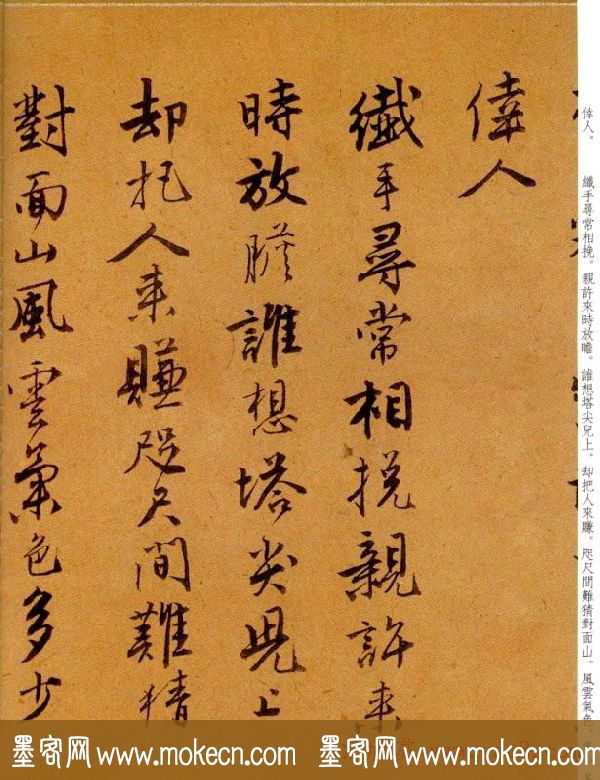 偉人
纖手尋常相挽親許来
時放膽誰想塔尖兒上
却把人来賺咫尺間難猜
對面山風雲氣色多少
偉人。 纖手尋常相挽。親許來時放瞻。誰想塔尖兒上。却把人來賺。咫尺間難猜對面山。風雲氣色
墨客网www.mokecn.com 墨客网www.mokecn.com